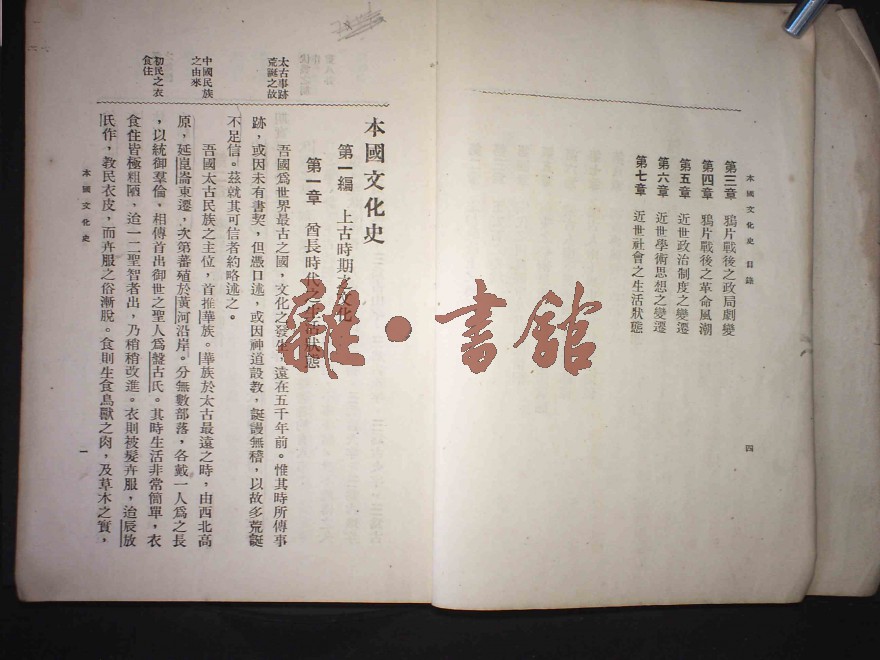 本國文化史 目錄
第三章 鴉片戰後之政局劇變
第四章 鴉片戰後之革命風潮
第五章 近世政治制度之變遷
第六章 近世學術思想之變遷
第七章 近世社會之生活狀態
四
本國文化史
第一編 上古時期之文化
第一章 酋長時代之生活狀態
太古事跡
荒誕之故
吾國爲世界最古之國，文化之發生，遠在五千年前。惟其時所傳事
跡，或因未有書契，但憑口述，或因神道設教，誕謾無稽，以故多荒誕
不足信。茲就其可信者約略述之。
中國民族
之由來
吾國太古民族之主位，首推華族。華族於太古最遠之時，由西北高
原，延崑崙東遷，次第蕃殖於黃河沿岸。分無數部落，各戴一人爲之長
，以統御羣倫。相傳首出御世之聖人爲盤古氏。其時生活非常簡單，衣
初民之衣
食住
食住皆極粗陋，迨一二聖智者出，乃稍稍改進。衣則被髮卉服，迨辰放
氏作，教民衣皮，而卉服之俗漸脫。食則生食鳥獸之肉，及草木之實，
本國文化史
一
雜·書館